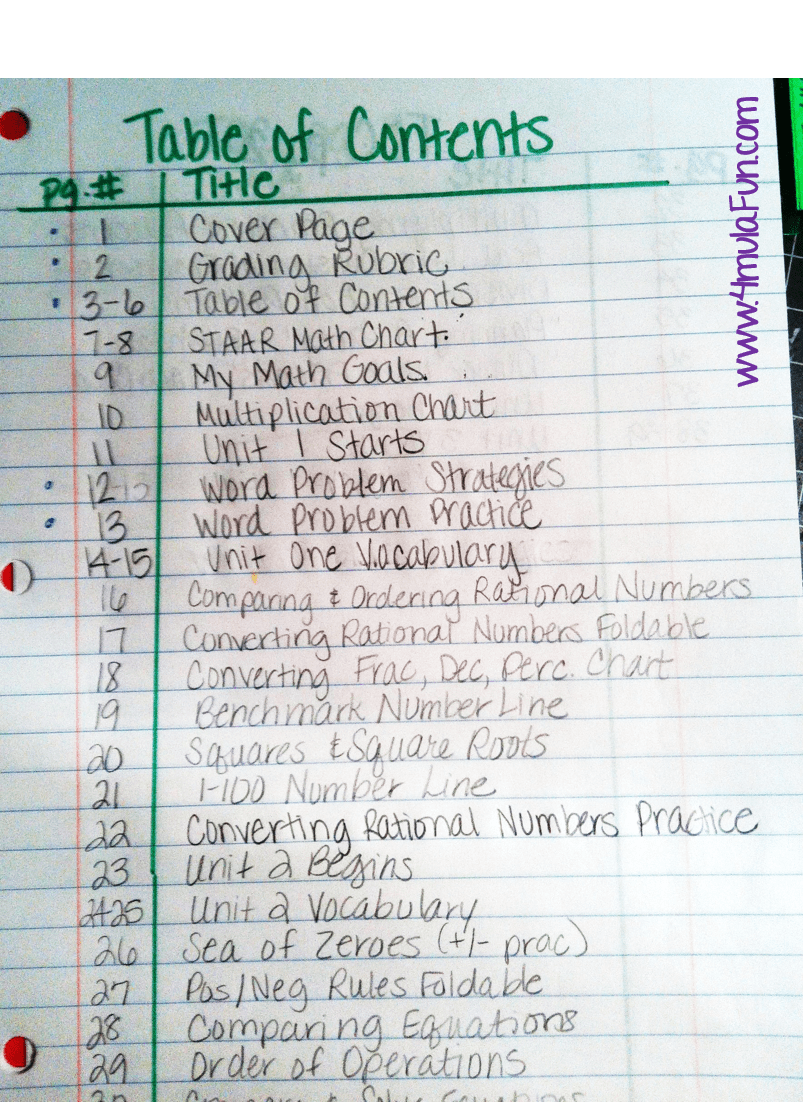 Table of Contents
pg.# Title
1 Cover Page
2 Grading Rubric
3-6 Table of Contents
7-8 STAAR Math Chart
9 My Math Goals
10 Multiplication Chart
11 Unit 1 Starts
12 Word Problem Strategies
13 Word Problem Practice
14-15 Unit One Vocabulary
16 Comparing & Ordering Rational Numbers
17 Converting Rational Numbers Foldable
18 Converting Frac, Dec, Perc. Chart
19 Benchmark Number Line
20 Squares & Square Roots
21 1-100 Number Line
22 Converting Rational Numbers Practice
23 Unit 2 Begins
24-25 Unit 2 Vocabulary
26 Sea of Zeroes (+/- prac)
27 Pos/Neg Rules Foldable
28 Comparing Equations
29 Order of Operations
www.4mulaFun.com